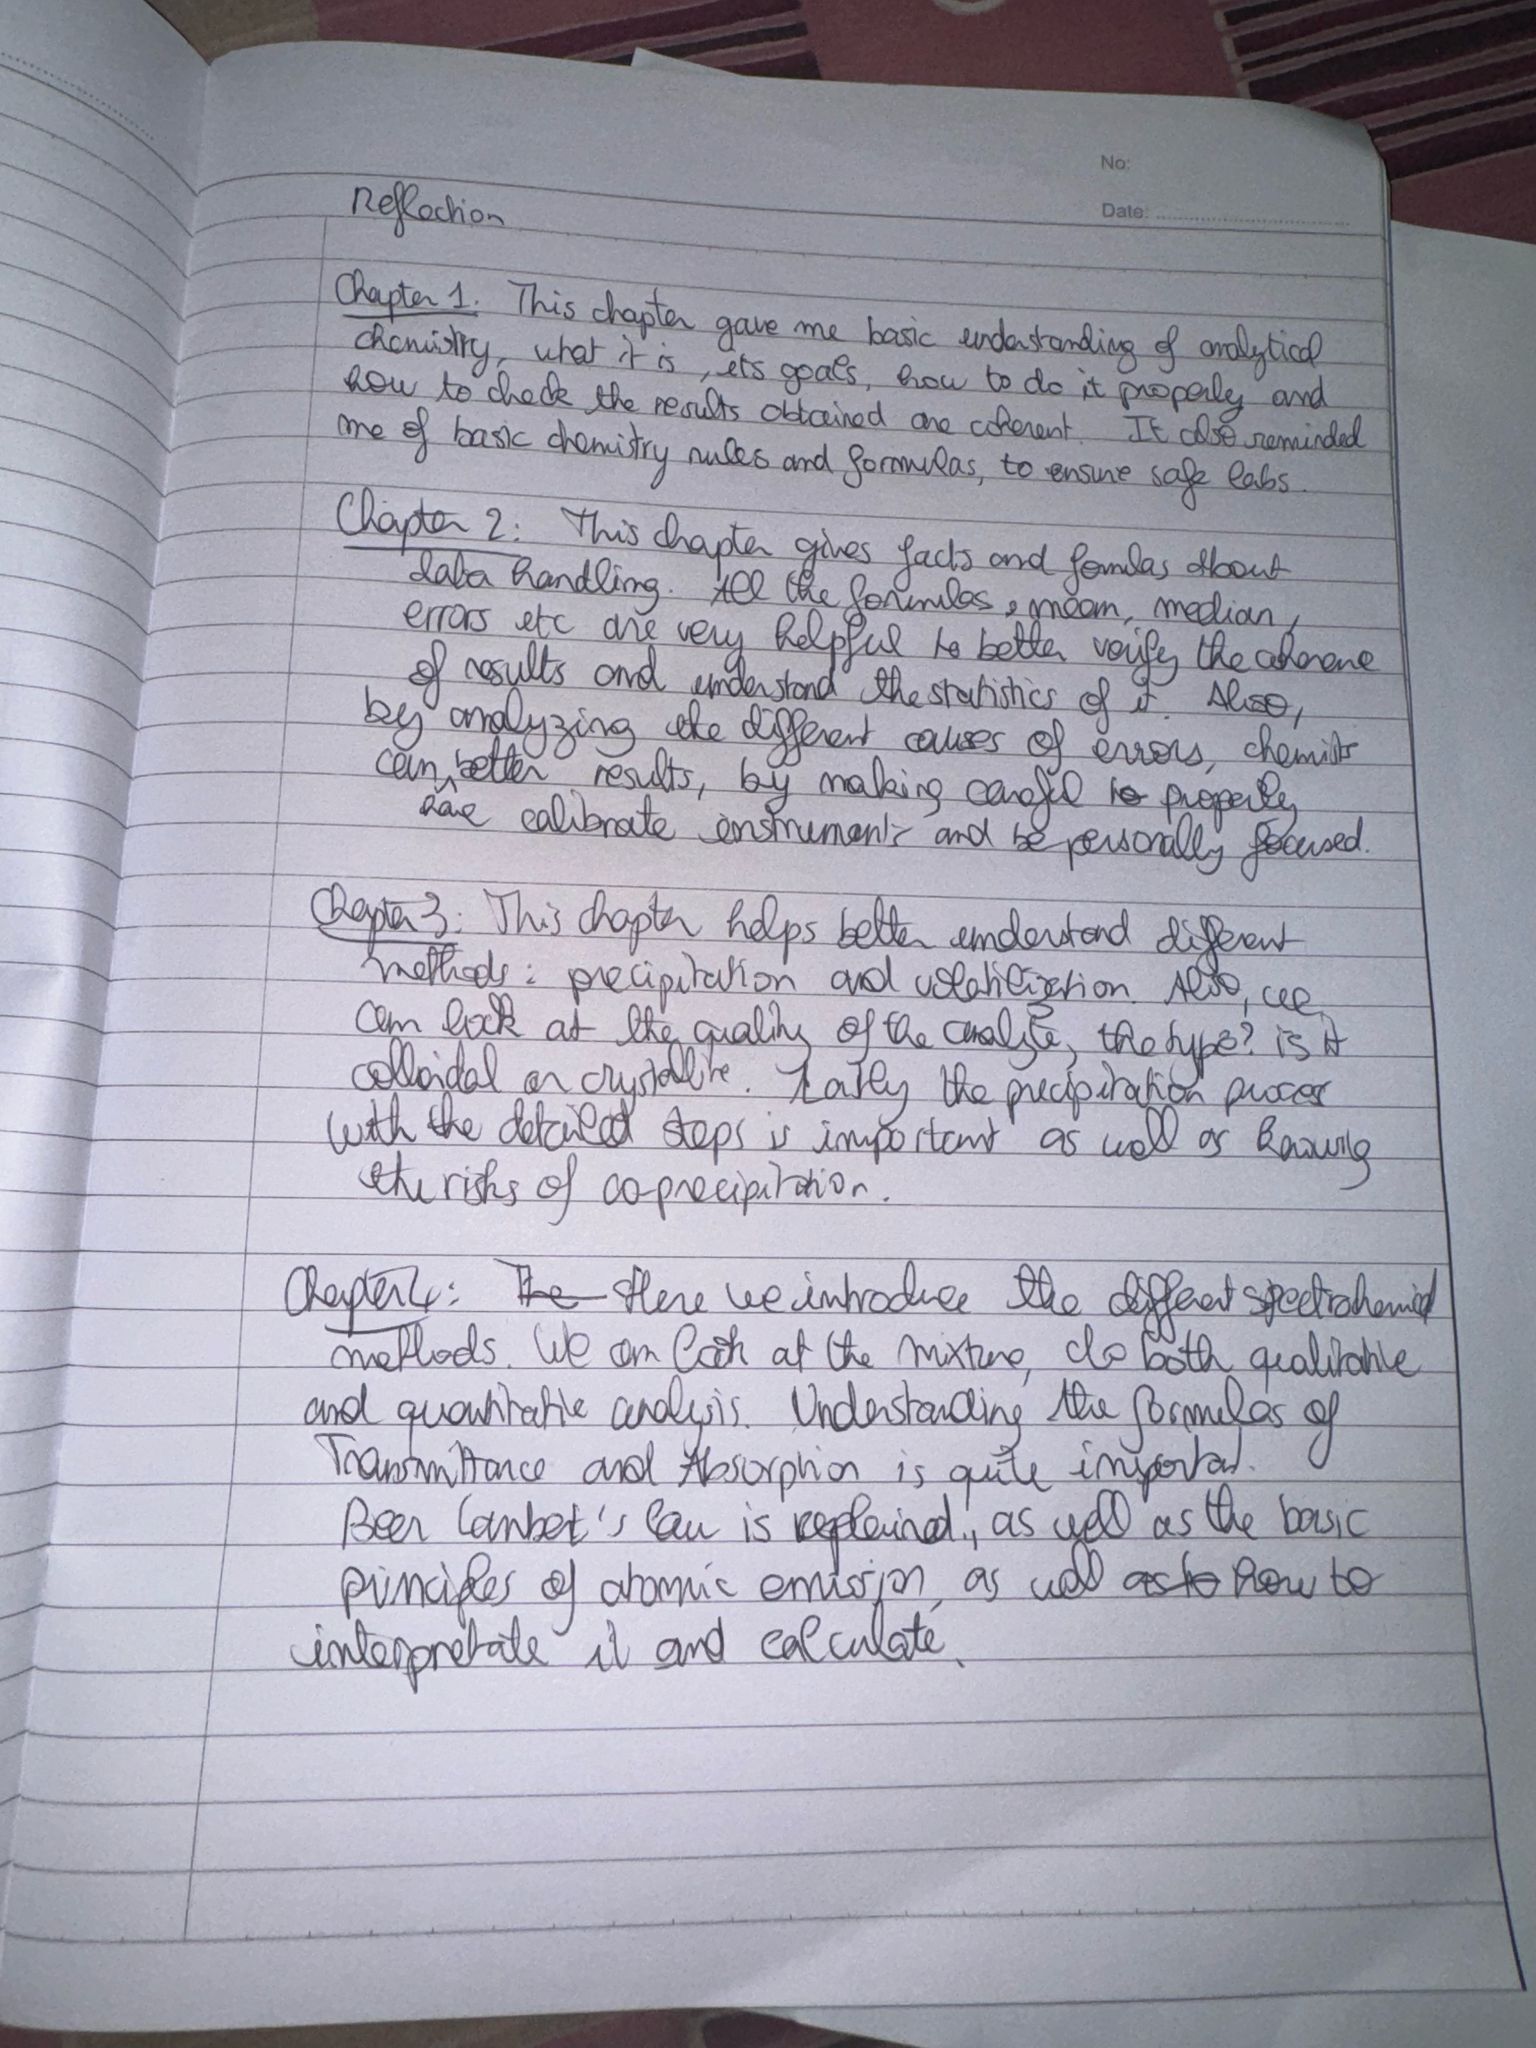 No:
Date:
Reflection
Chapter 1. This chapter gave me basic understanding of analytical
chemistry, what it is, its goals, how to do it properly and
how to check the results obtained are coherent. It also reminded
me of basic chemistry rules and formulas, to ensure safe labs.
Chapter 2: This chapter gives facts and fomulas about
data handling. All the formulas, mean, median,
errors etc are very helpful to better verify the coherene
of results and understand the statistics of it. Also,
by analyzing the different causes of errors, chemists
can have better results, by making careful to properly
calibrate instruments and be personally focused.
Chapter 3: This chapter helps better understand different
methods: precipitation and volatilization. Also, we
can look at the quality of the analyte, the type? is it
colloidal or crystallite. Lastly the precipitation process
with the detailed steps is important as well as knowing
the risks of co-precipitation.
Chapter 4: The Here we introduce the different spectrochemical
methods. We can look at the mixture, do both qualitative
and quantitative analysis. Understanding the formulas of
Transmittance and Absorption is quite important.
Beer Lambert's law is explained, as well as the basic
principles of atomic emission, as well as to how to
interpretate it and calculate.